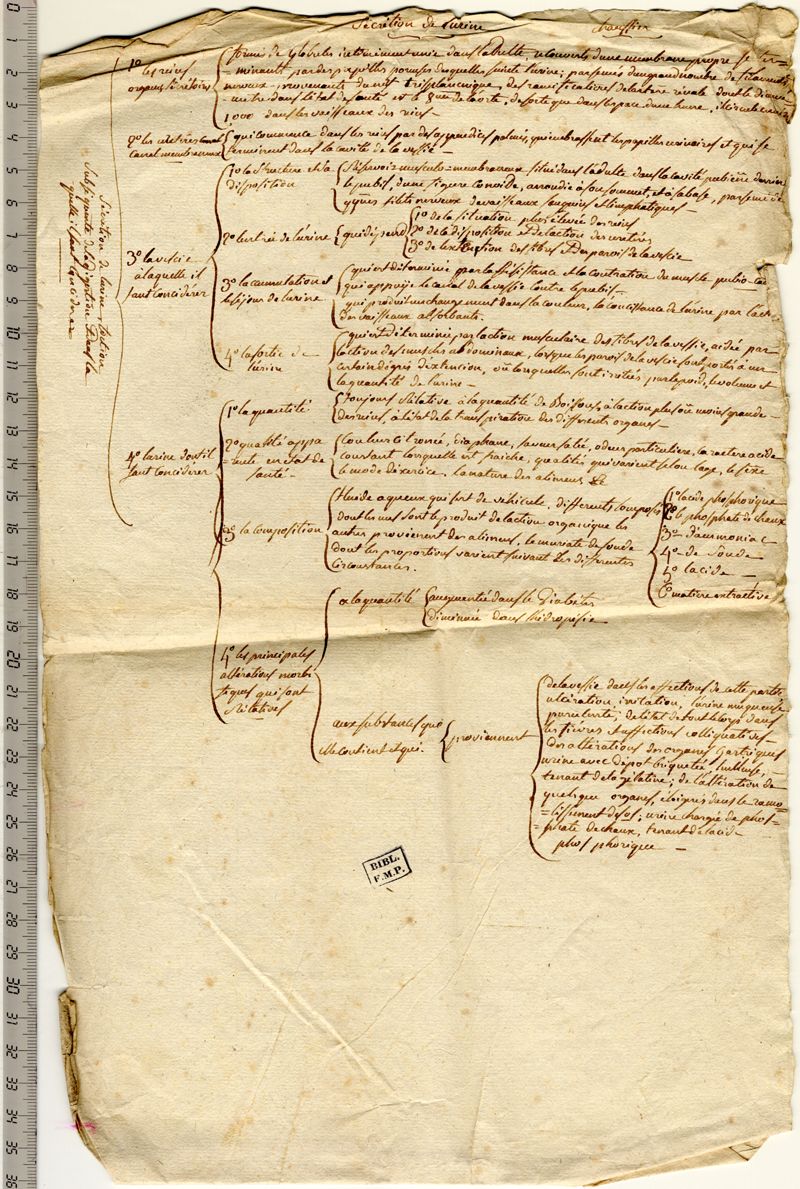 Sécrétion de l'urine
chaussier
1º les reins
organes sécrétoires
formés de globules intimément unis dans l'adulte, recouverts d'une membrane propre se ter=
=minants par des papilles poreuses desquelles suinte l'urine; parsemés d'un grand nombre de filaments
nerveux, provenants du nerf trisplanchnique, des ramifications de l'artere rénale dont le diame
=metre dans l'état de santé est le 8me de l'aorte, de sorte que dans l'espace d'une heure, il circule
1,000 dans les vaisseaux des reins
2º les ureteres
canal membraneux
qui commence dans les reins par des appendices palmés, qui embrassent les papilles urinaires et qui se
terminent dans la cavité de la vessie
Sécrétion de l'urine, fonction
dans la
quelle il faut considérer
3º la vessie
à laquelle il
faut considérer
1º la structure et sa
disposition
Réservoir musculo=membraneux situé dans l'adulte dans la cavité pubienne derriere
le pubis, d'une figure conoide, arrondie à son sommet, et à sa base, parsemé de
filets nerveux de vaisseaux sanguins et limphatiques
2º l'entrée de l'urine
qui dépend
1º de la situation plus élevée des reins
2º de la disposition et de l'action des ureteres
3º de l'extension des fibres et des parois de la vessie
3º l'accumulation et
le séjour de l'urine
qui est déterminée par la résistance et la contraction du muscle pubio=
qui appuije le canal de la vessie contre le pubis
qui produit un changement dans la couleur, la consistance de l'urine par l'act.
des vaisseaux absorbants.
4º la sortie de
l'urine
qui est déterminée par l'action musculaire des fibres de la vessie, aidée par
l'action des muscles abdominaux, lorsque les parois de la vessie sont portés à un
certain dégré d'extension, où lorsqu'elles sont irritées par le poid, le volume et
la quantité de l'urine
4º l'urine dont il
faut considérer
1º la quantité
toujours rélative à la quantité de boissons, à l'action plus où moins grande
des reins, à l'état de la transpiration des differents organes
2º qualité appa
rente en état de
santé
Couleur citronée, diaphane, saveur salée, odeur particuliere, caractere acide
constant lorsquelle est fraiche, qualités qui varient selon l'age, le sexe
le mode d'exercice, la nature des aliments &
3º la composition
fluide aqueux qui sert de véhicule, differents composés
dont les uns sont le produit de l'action organique les
autres proviennent des aliments, le muriate de soude
dont les proportions varient suivant les differentes
circonstances.
1º l'acide phosphorique
2º le phosphate de chaux
3º d'ammoniac
4º de soude
5º l'acide
6º matiere extractive
4º les principales
altérations morbi
fiques qui sont
rélatives
a la quantité
augmentée dans le diabétes
diminuée dans l'hidropisie
aux substances que
elle contient et qui
proviennent
de la vessie dans les affections de cette partie
ulcération, irritation, l'urine muqueuse
purulente; de l'état de tout le corps dans
les fievres et affections colliquatives
des altérations des organes gastriques
urine avec dépôt briqueté
tenant de la gélatine; de l'altération de
quelques organes, éloignés dans le ramo=
=lissement des os; urine chargée de phos=
=phate de chaux, tenant de l'acide
phosphorique
BIBL.
F.M.P.